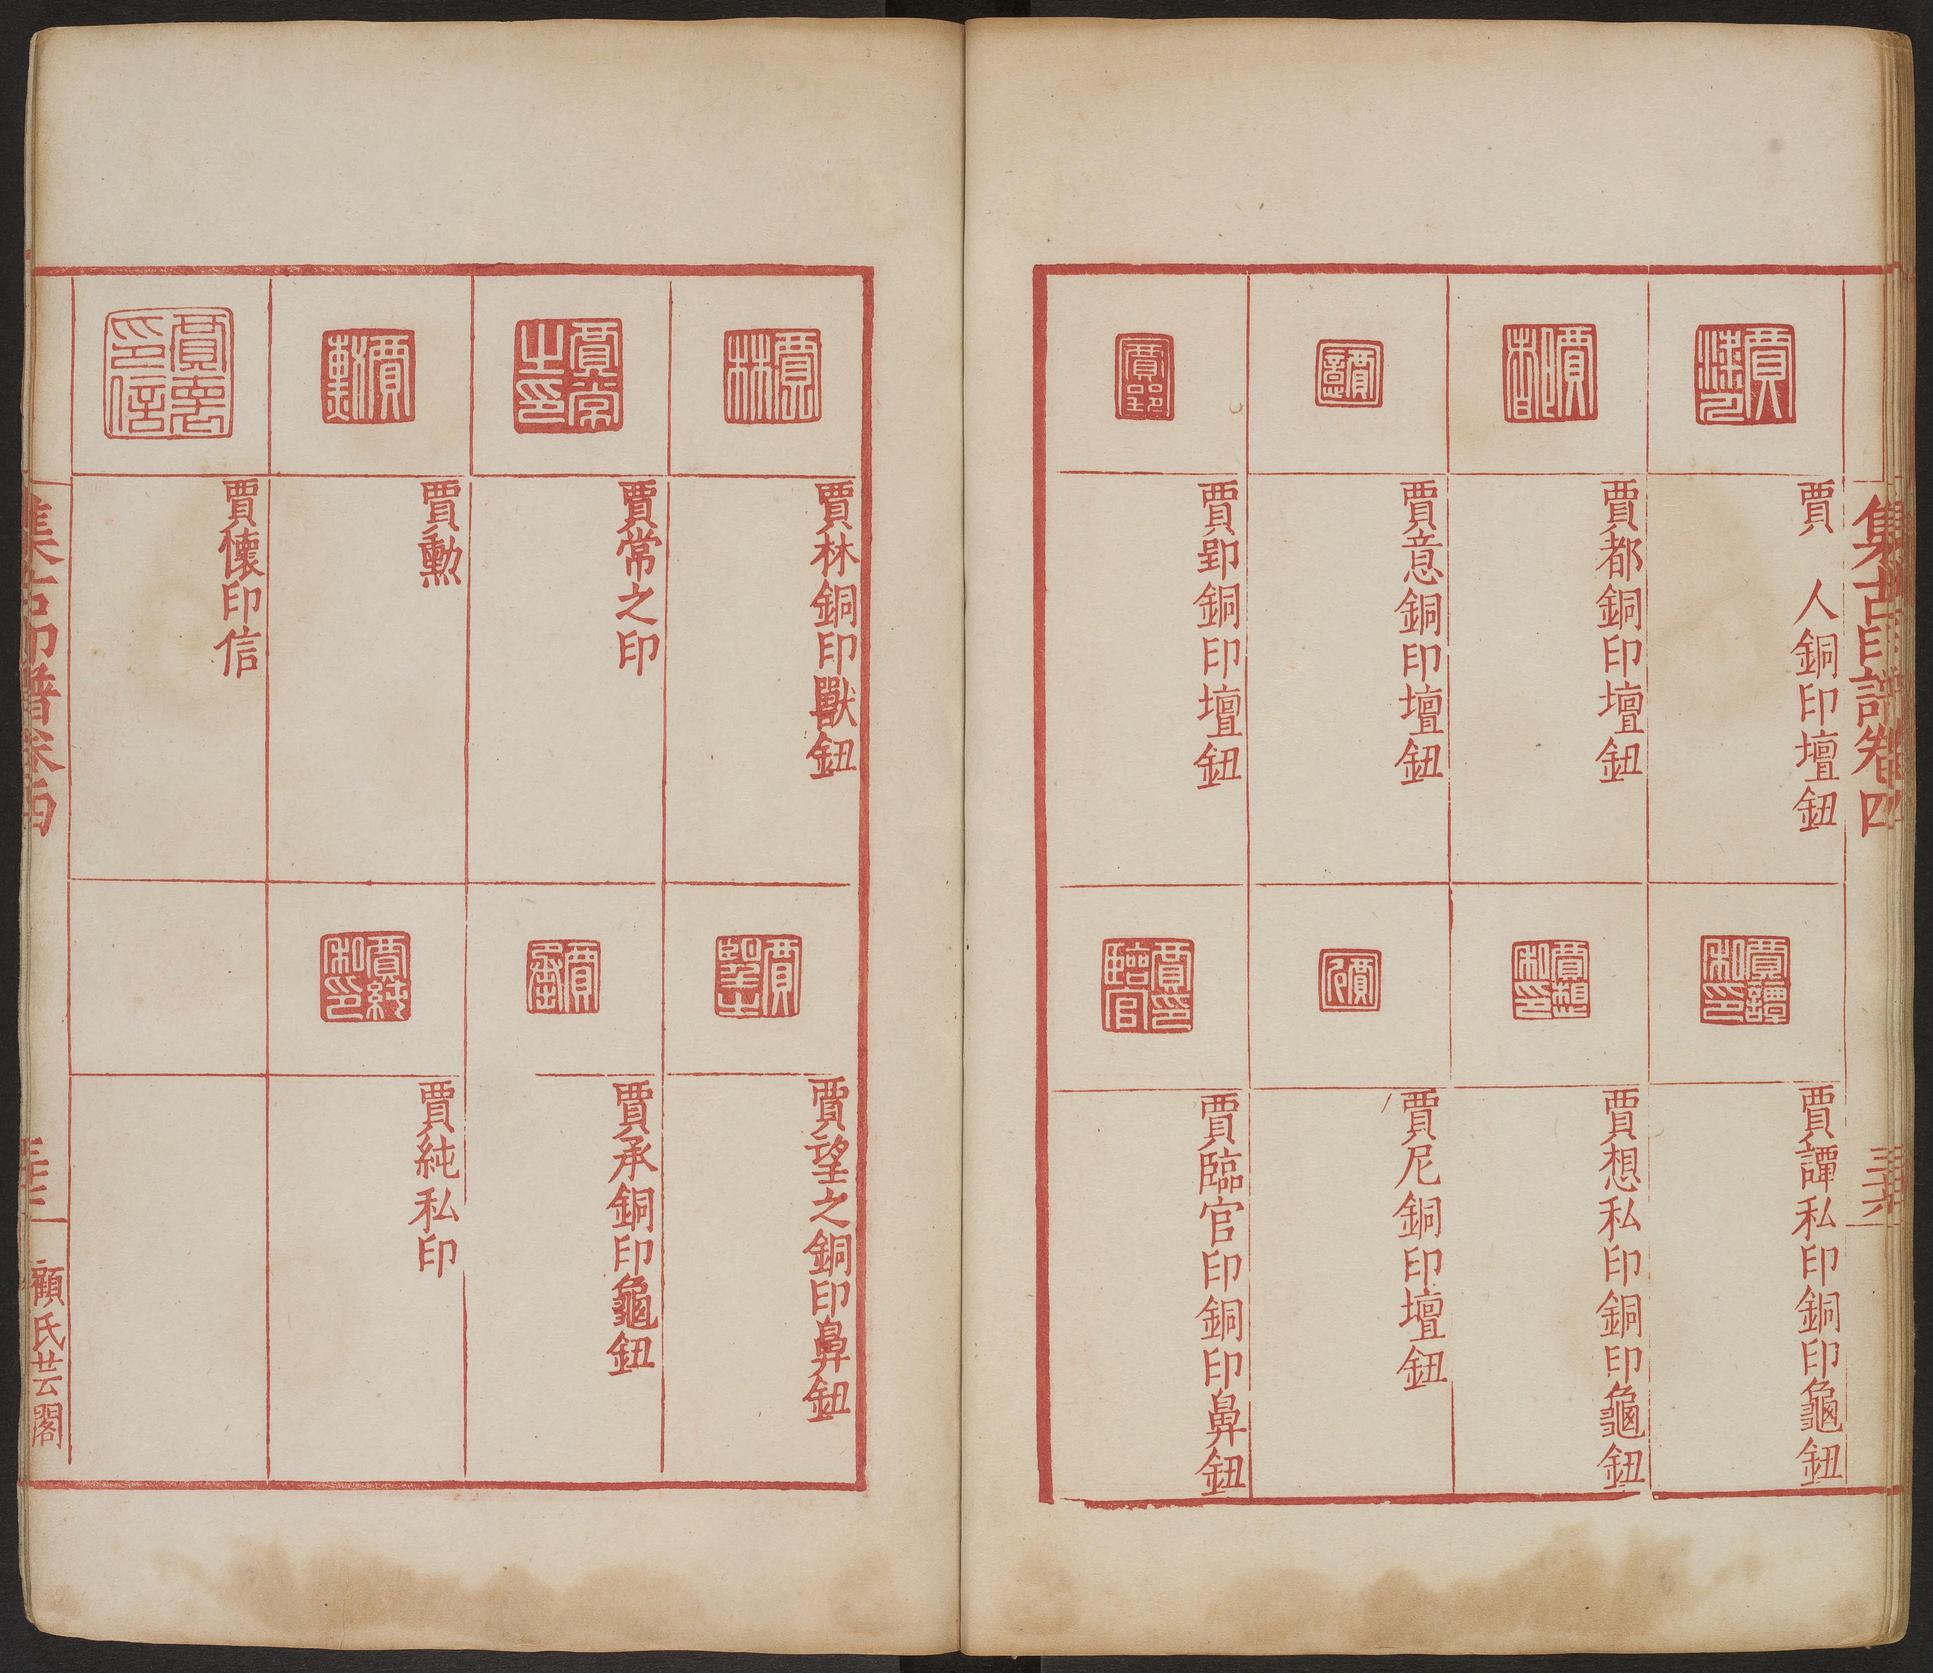 集古印譜卷四
賈 人銅印壇鈕
賈都銅印壇鈕
賈意銅印壇鈕
賈郢銅印壇鈕
賈譚私印銅印龜鈕
賈想私印銅印龜鈕
賈尼銅印壇鈕
賈臨官印銅印鼻鈕
賈林銅印獸鈕
賈常之印
賈勳
賈懷印信
賈望之銅印鼻鈕
賈承銅印龜鈕
賈純私印
集古印譜卷四
顧氏芸閣